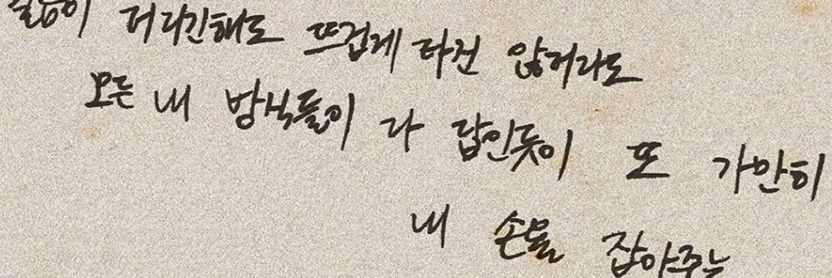 뜨겁게 타진 않더라도
모든 내 방식들이 다 답인듯이 또 가만히
내 손을 잡아주는